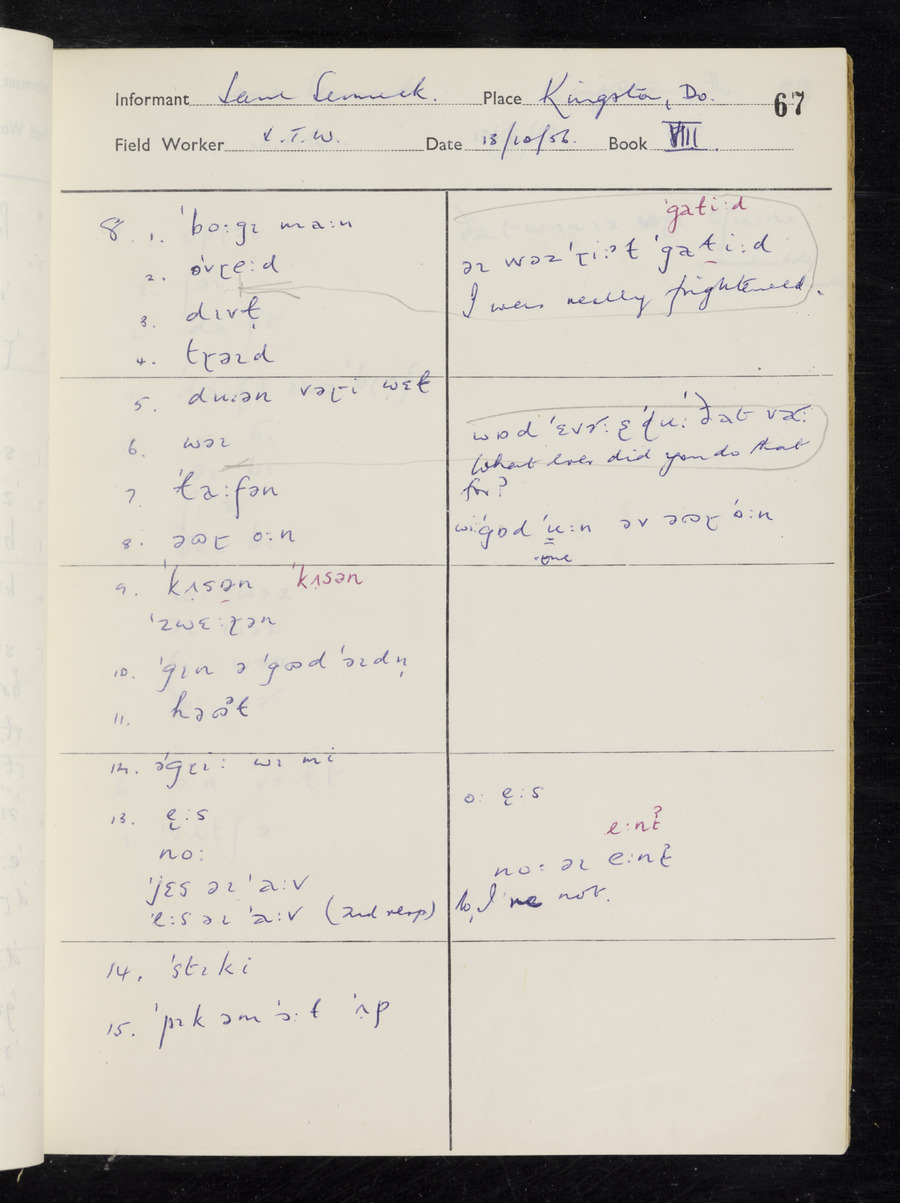 Informant
Place Kingston, Do.
67
Field Worker V.T.W. Date 13/10/56. Book VIII
8 1. ˈboːgɪ maːn
2. əˈvɽeːd
3. dɪvṭ
4. tɽəɪd
5. duːən vəɽi wɛt
6. wəɪ
7. ˈtaːfən
8. əʊɽ oːn
9. ˈkʌsən ˈkʌsən
ˈzwɛːɽən
10. ˈgɪn ə ˈgʊd ˈəɪdn̩
11. həʊˀt
12. əˈgɽiː wɪ mi
13. ę:s
noː
ˈjɛs əɪ ˈaːv
ˈeːs əɪ ˈaːv (2nd resp)
14. ˈstɪki
15. ˈpɪk əm ˈəːt ˈʌp
ˈgatiːd
əɪ wəz ˈɽiːˀt ˈgatiːd
I were really frightened.
What ever did you do that
for?
wiˈgɒd ˈuːn əv əʊɽ ˈoːn
one
oː ę:s
eːnt
noː əɪ eːnt
No, I've not.